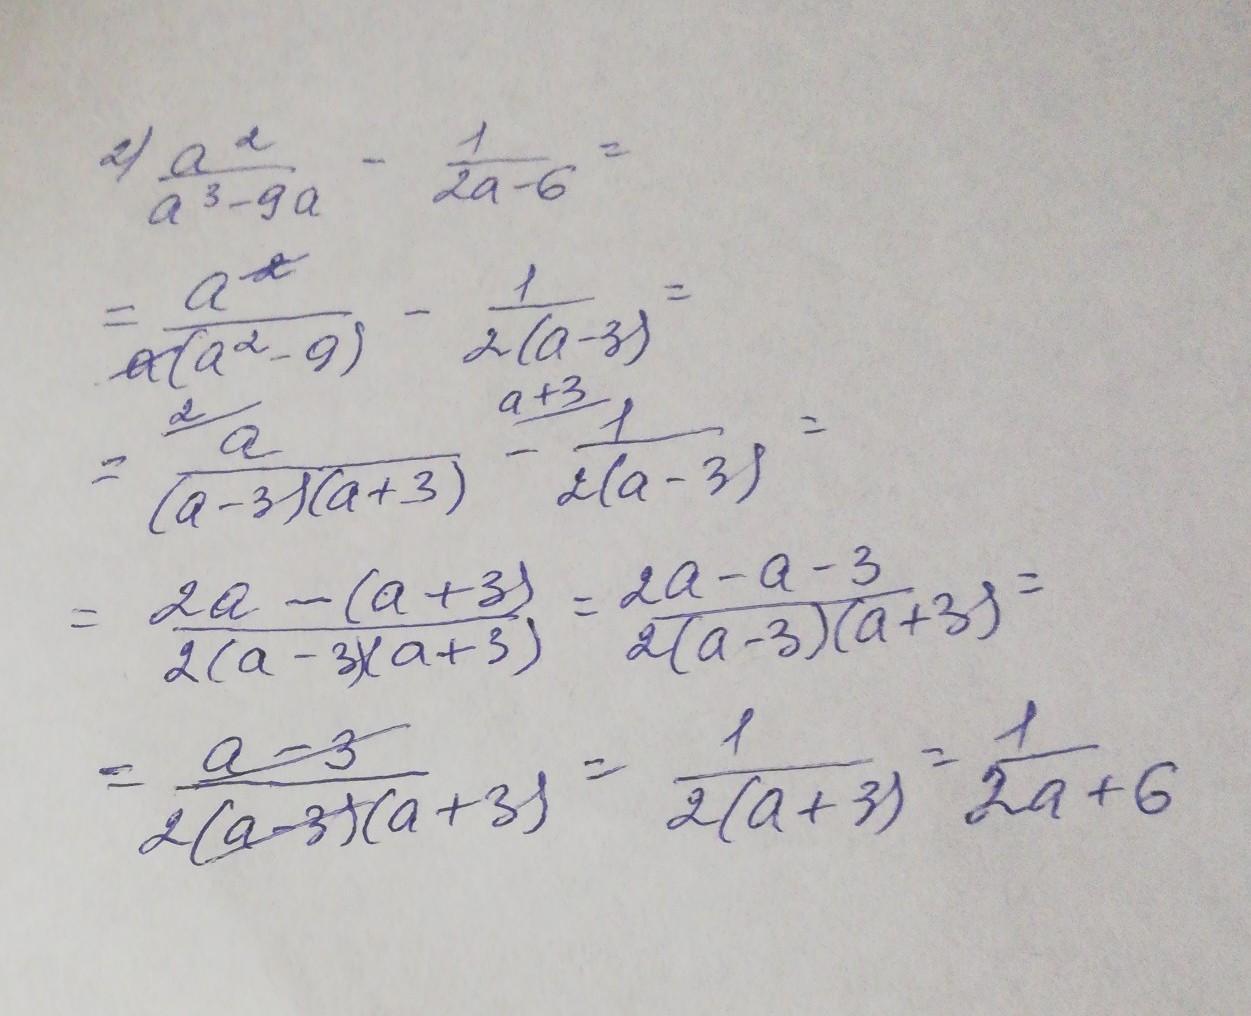 2) a²/(a³-9a) - 1/(2a-6) =
= a²/(a(a²-9)) - 1/(2(a-3)) =
2 a+3
= a/((a-3)(a+3)) - 1/(2(a-3)) =
= (2a-(a+3))/(2(a-3)(a+3)) = (2a-a-3)/(2(a-3)(a+3)) =
= (a-3)/(2(a-3)(a+3)) = 1/(2(a+3)) = 1/(2a+6)